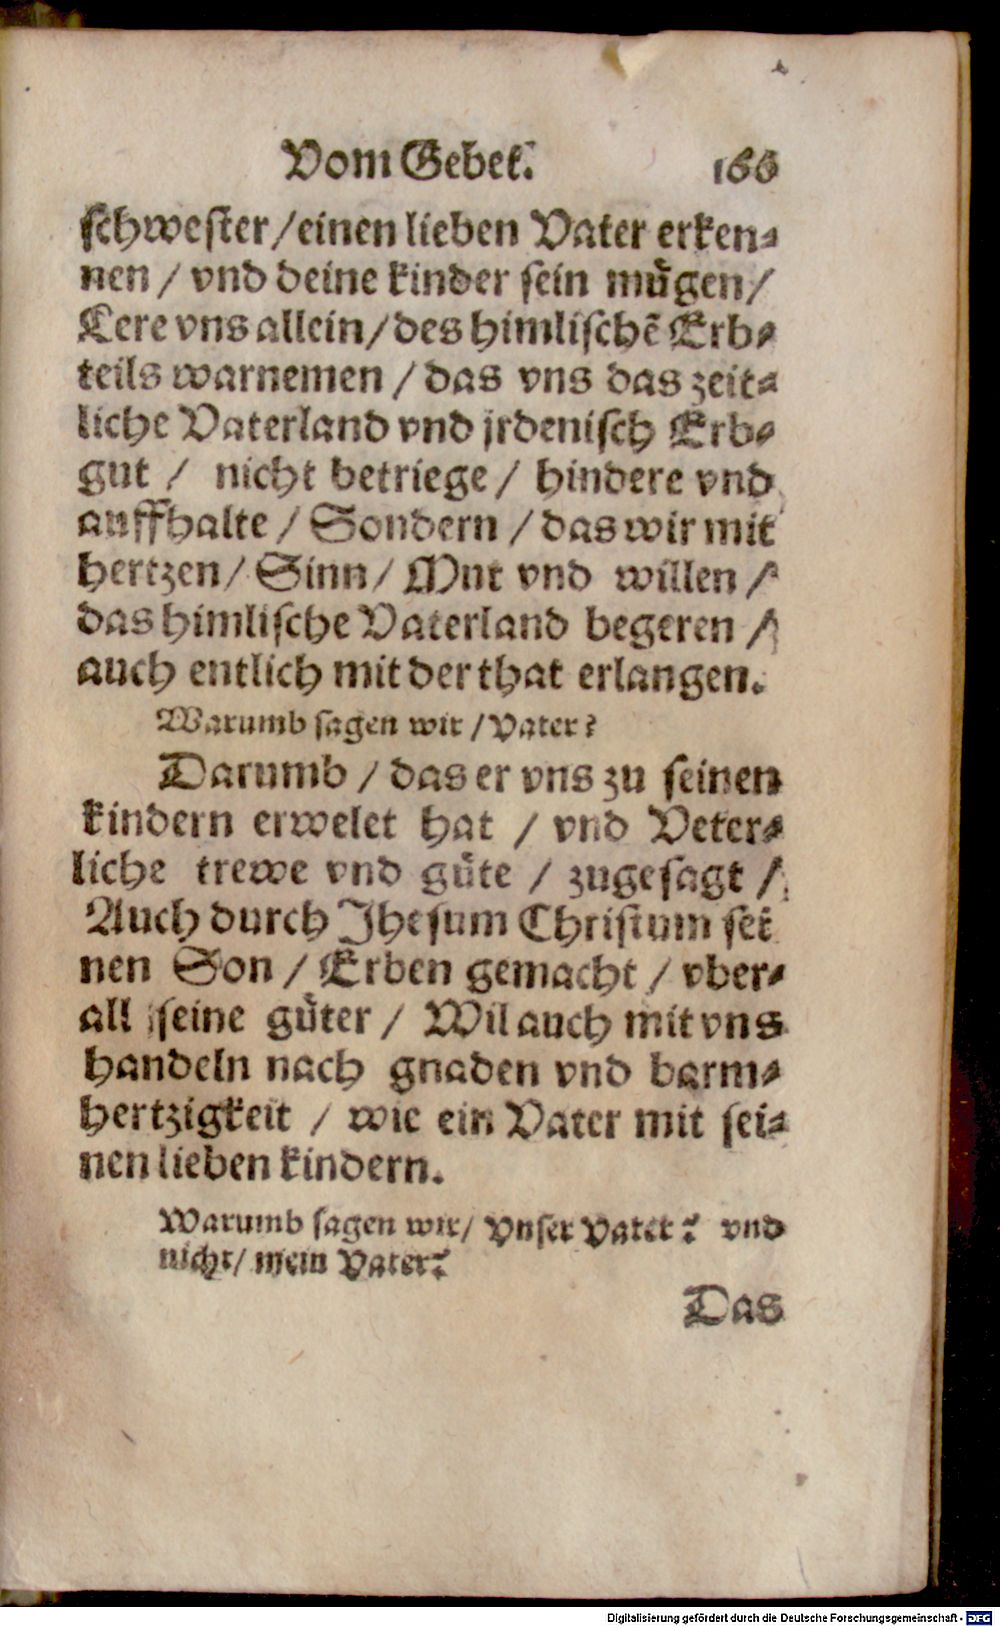 Vom Gebet. 166
schwester / einen lieben Vater erken⸗
nen / vnd deine kinder sein muͤgen /
Lere vns allein / des himlischē Erb⸗
teils warnemen / das vns das zeit⸗
liche Vaterland vnd jrdenisch Erb⸗
gut / nicht betriege / hindere vnd
auffhalte / Sondern / das wir mit
hertzen / Sinn / Mut vnd willen /
das himlische Vaterland begeren /
auch entlich mit der that erlangen.
Warumb sagen wir / Vater?
Darumb / das er vns zu seinen
kindern erwelet hat / vnd Veter⸗
liche trewe vnd guͤte / zugesagt /
Auch durch Jhesum Christum sei
nen Son / Erben gemacht / vber⸗
all seine guͤter / Wil auch mit vns
handeln nach gnaden vnd barm⸗
hertzigkeit / wie ein Vater mit sei⸗
nen lieben kindern.
Warumb sagen wir / Vnser Vater? vnd
nicht / mein Vater?
Das
Digitalisierung gefördert durch die Deutsche Forschungsgemeinschaft - DFG